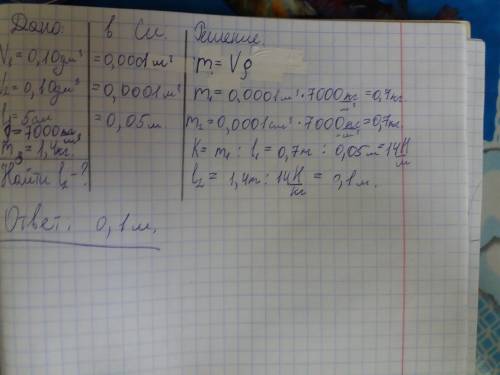 Дано:
V₁ = 0,10 дм³
V₂ = 0,10 дм³
l₁ = 5 см
ρ = 7000 кг/м³
m₃ = 1,4 кг.
Найти l₂ - ?
в Си.
= 0,0001 м³
= 0,0001 м³
= 0,05 м.
Решение.
m = Vρ
m₁ = 0,0001 м³ · 7000 кг/м³ = 0,7 кг.
m₂ = 0,0001 см³ · 7000 кг/м³ = 0,7 кг.
K = m₁ : l₁ = 0,7 м : 0,05 м = 14 Н/м
l₂ = 1,4 м : 14 Н/кг = 0,1 м.
Ответ. 0,1 м.